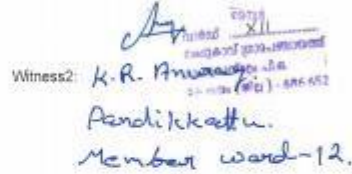 XII
Witness2: K.R. Anuragi.
686 652
Pandikkattu.
Member ward-12.